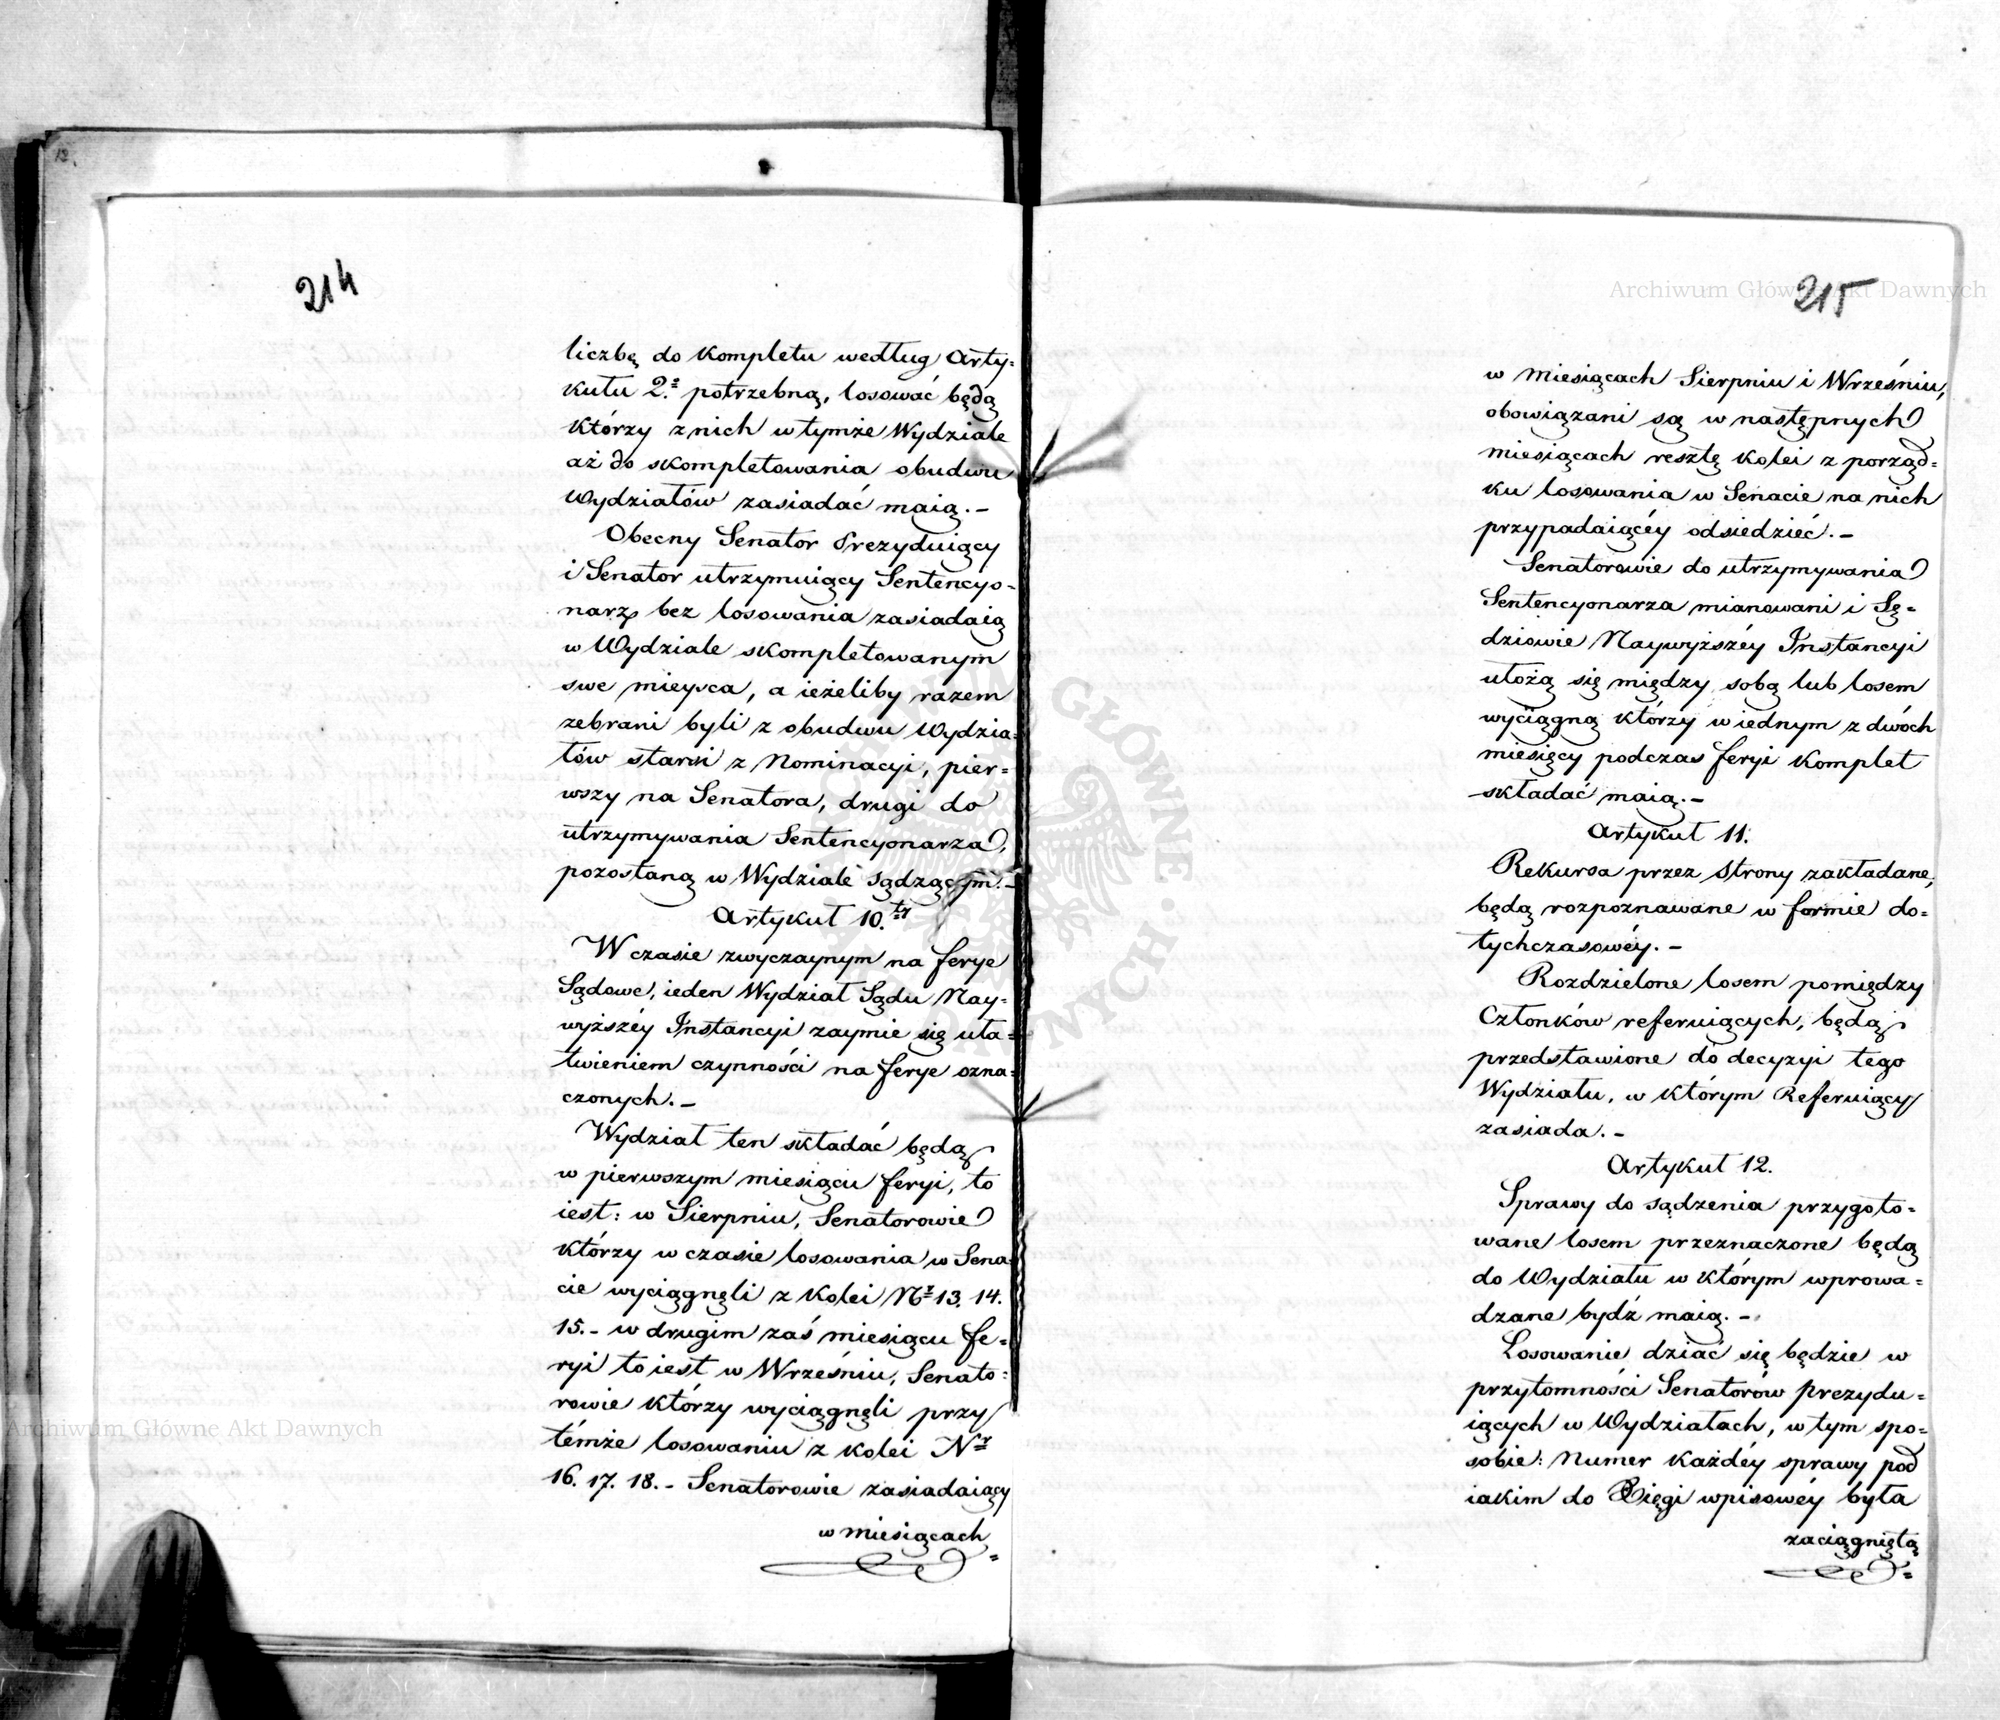 12.
214
liczbę do kompletu według Arty=
kułu 2º potrzebną, losować będą
którzy z nich w tymże Wydziale
aż do skompletowania obudwu
Wydziałów zasiadać maią.–
Obecny Senator Prezyduiący
i Senator utrzymuiący Sentencyo=
narz bez losowania zasiadaią
w Wydziale skompletowanym
swe mieysca, a ieżeliby razem
zebrani byli z obudwu Wydzia=
łów starsi z Nominacyi, pier=
wszy na Senatora, drugi do
utrzymywania Sentencyonarza,
pozostaną w Wydziale sądzącym.–
Artykuł 10.ty
W czasie zwyczaynym na ferye
Sądowe, ieden Wydział Sądu Nay=
wyższéy Instancyi zaymie się uła=
twieniem czynności na ferye ozna=
czonych.–
Wydział ten składać będą
w pierwszym miesiącu feryi, to
iest: w Sierpniu, Senatorowie
którzy w czasie losowania w Sena=
cie wyciągnęli z kolei Nr 13. 14.
15.– w drugim zaś miesiącu fe=
ryi to iest w Wrześniu, Senato=
rowie którzy wyciągnęli przy
témże losowaniu z kolei Nr
16. 17. 18.– Senatorowie zasiadaiący
w miesiącach=
215
w miesiącach Sierpniu i Wrześniu,
obowiązani są w następnych
miesiącach resztę kolei z porząd=
ku losowania w Senacie na nich
przypadaiącéy odsiedzieć.–
Senatorowie do utrzymywania
Sentencyonarza mianowani i Sę=
dziowie Naywyższéy Instancyi
ułożą się między sobą lub losem
wyciągną którzy w iednym z dwóch
miesięcy podczas feryi komplet
składać maią.–
Artykuł 11.
Rekursa przez strony zakładane,
będą rozpoznawane w formie do=
tychczasowéy.–
Rozdzielone losem pomiędzy
Członków referuiących, będą
przedstawione do decyzyi tego
Wydziału, w którym Referuiący
zasiada.–
Artykuł 12.
Sprawy do sądzenia przygoto=
wane losem przeznaczone będą
do Wydziału w którym wprowa=
dzane bydź maią.–
Losowanie dziać się będzie w
przytomności Senatorów prezydu=
iących w Wydziałach, w tym spo=
sobie: Numer każdéy sprawy pod
iakim do Xięgi wpisowéy była
zaciągniętą=
Archiwum Główne Akt Dawnych
Archiwum Główne Akt Dawnych
ARCHIWUM GŁÓWNE AKT DAWNYCH